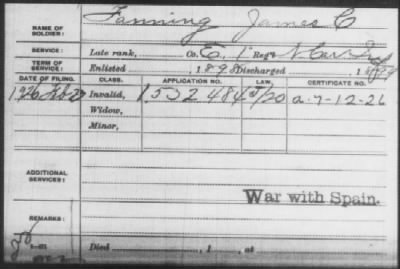 NAME OF SOLDIER: Fanning James C
SERVICE: Late rank, Co. E, 1 Reg't N. Car. Inf
TERM OF SERVICE: Enlisted 1898 Discharged , 1
DATE OF FILING. CLASS. APPLICATION NO. LAW. CERTIFICATE NO.
1926 Invalid, 1532484 5/20 a-7-12-26
Widow,
Minor,
ADDITIONAL SERVICES:
War with Spain.
REMARKS:
Died , 1 , at